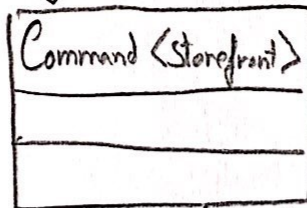 Command <Storefront>